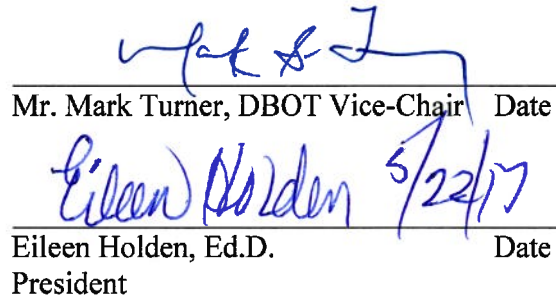 Mark S. T
Mr. Mark Turner, DBOT Vice-Chair Date
Eileen Holden 5/22/17
Eileen Holden, Ed.D. Date
President